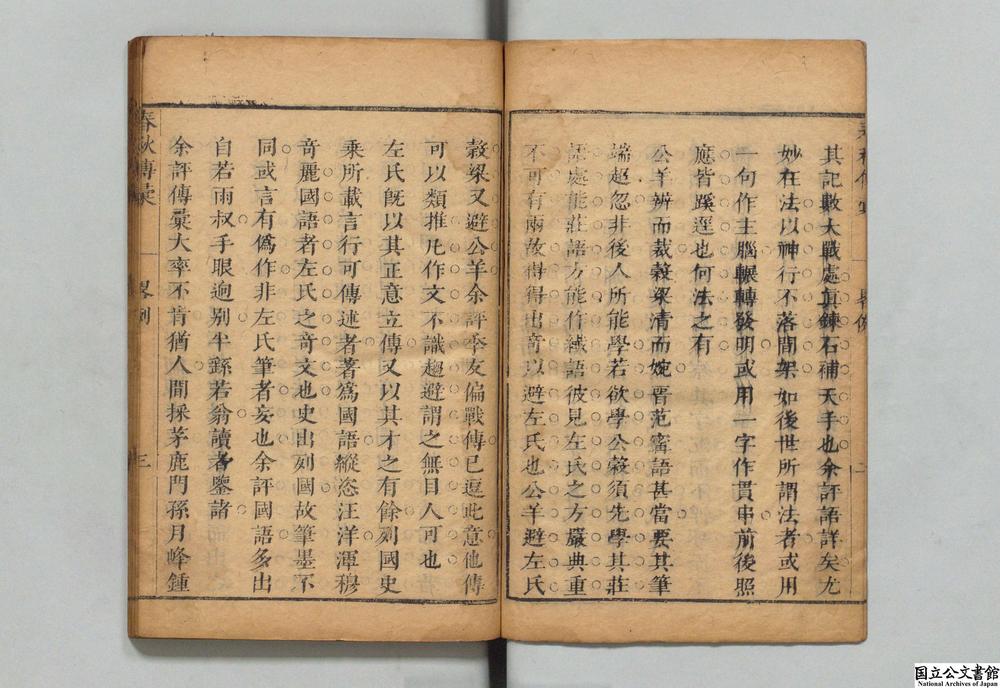 其記數大戰處真鍊石補天手也余評語詳矣尤
妙在法以神行不落間架如後世所謂法者或用
一句作主腦輾轉發明或用一字作貫串前後照
應皆蹊逕也何法之有
公羊辨而裁榖梁清而婉晋范甯語甚當要其筆
端超忽非後人所能學若欲學公榖須先學其莊
語處能莊語方能作緘語彼見左氏之方嚴典重
不可有兩故得得出奇以避左氏也公羊避左氏
榖梁又避公羊余評季友偏戰傳已逗此意他傳
可以類推凡作文不識趨避謂之無目人可也
左氏旣以其正意立傳又以其才之有餘列國史
乘所載言行可傳述者著爲國語縱恣汪洋潭穆
奇麗國語者左氏之奇文也史出列國故筆墨不
同或言有僞作非左氏筆者妄也余評國語多出
自若雨叔手眼逈别半繇若翁讀者鑒諸
余評傳彚大率不肯猶人間採茅鹿門孫月峰鍾
春秋傳彚
畧例
三
国立公文書館
National Archives of Japan